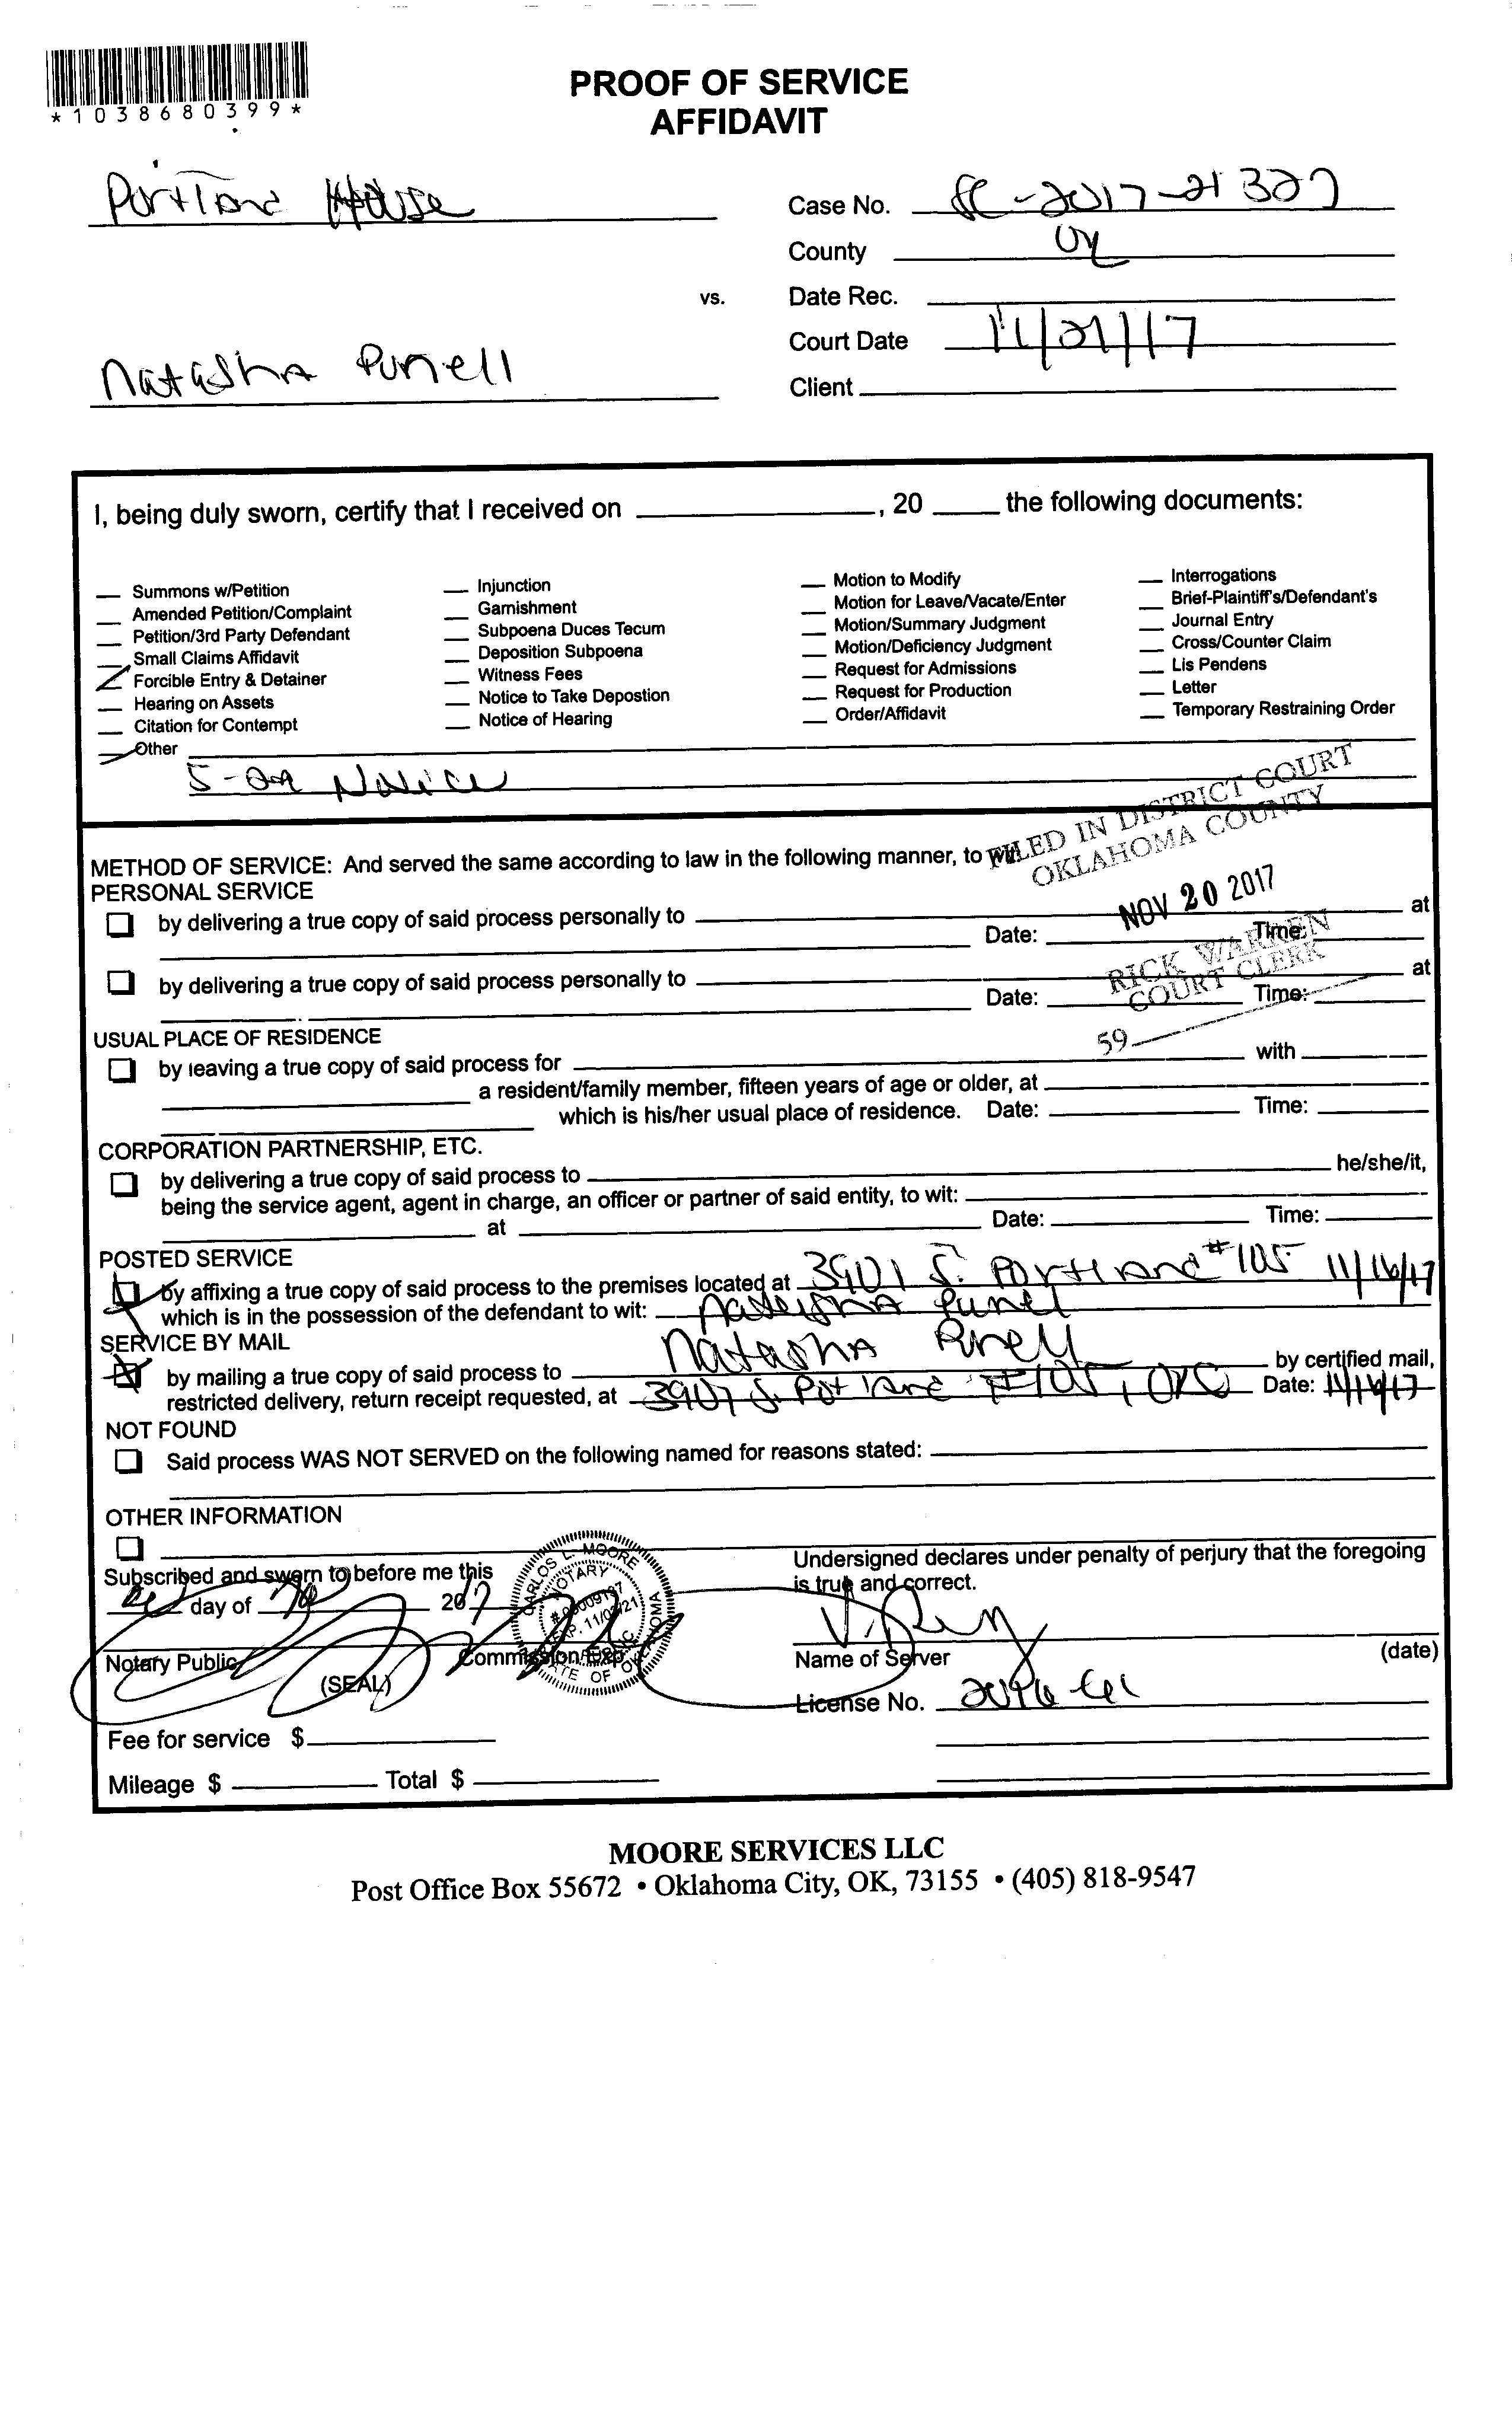 *1038680399*
PROOF OF SERVICE
AFFIDAVIT
Portland House
Case No. SC-2017-21327
County
vs.
Date Rec.
Court Date 11/21/17
Natasha Punell
Client
I, being duly sworn, certify that I received on , 20 the following documents:
Summons w/Petition
Amended Petition/Complaint
Petition/3rd Party Defendant
Small Claims Affidavit
Forcible Entry & Detainer
Hearing on Assets
Citation for Contempt
Other
Injunction
Garnishment
Subpoena Duces Tecum
Deposition Subpoena
Witness Fees
Notice to Take Depostion
Notice of Hearing
Motion to Modify
Motion for Leave/Vacate/Enter
Motion/Summary Judgment
Motion/Deficiency Judgment
Request for Admissions
Request for Production
Order/Affidavit
Interrogations
Brief-Plaintiff's/Defendant's
Journal Entry
Cross/Counter Claim
Lis Pendens
Letter
Temporary Restraining Order
Notice
FILED IN DISTRICT COURT
OKLAHOMA COUNTY
NOV 20 2017
RICK WARREN
COURT CLERK
59
METHOD OF SERVICE: And served the same according to law in the following manner, to
PERSONAL SERVICE
by delivering a true copy of said process personally to at
Date: Time:
by delivering a true copy of said process personally to at
Date: Time:
USUAL PLACE OF RESIDENCE
by leaving a true copy of said process for with
a resident/family member, fifteen years of age or older, at
which is his/her usual place of residence. Date: Time:
CORPORATION PARTNERSHIP, ETC.
by delivering a true copy of said process to he/she/it,
being the service agent, agent in charge, an officer or partner of said entity, to wit:
at Date: Time:
POSTED SERVICE
by affixing a true copy of said process to the premises located at 3901 S. Portland #105 11/16/17
which is in the possession of the defendant to wit:
SERVICE BY MAIL
by mailing a true copy of said process to Natasha by certified mail,
restricted delivery, return receipt requested, at #105, OKC Date: 11/16/17
NOT FOUND
Said process WAS NOT SERVED on the following named for reasons stated:
OTHER INFORMATION
Subscribed and sworn to before me this
day of 2017
Notary Public
(SEAL)
Commission Exp.
CARLOS L. MOORE
NOTARY
PUBLIC
STATE OF OKLAHOMA
Undersigned declares under penalty of perjury that the foregoing
is true and correct.
Name of Server (date)
License No.
Fee for service $
Mileage $ Total $
MOORE SERVICES LLC
Post Office Box 55672 • Oklahoma City, OK, 73155 • (405) 818-9547